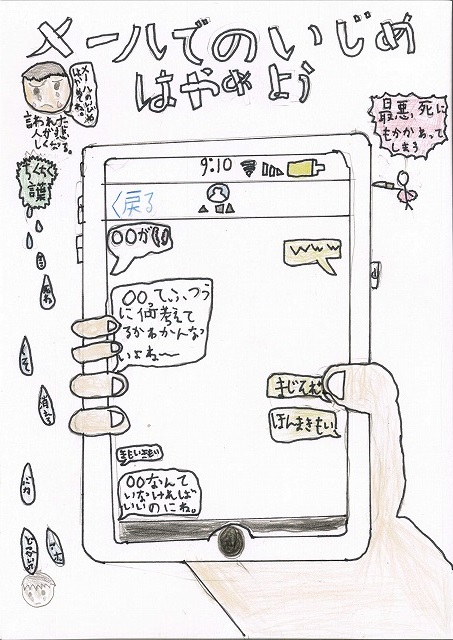 メールでのいじめ
はやめよう
メールのいじめ
はダメだね。
言われた
人が悲
しくなる。
ちくちく
言葉
最悪、死に
もかかわって
しまう
9:10
く戻る
〇〇が
www
〇〇ってふつう
に何考えて
るかわかんな
いよね〜
まじそれ
ほんまきもい
きもいきもい
〇〇なんて
いなければ
いいのにね。
死ね
うそ
消えろ
バカ